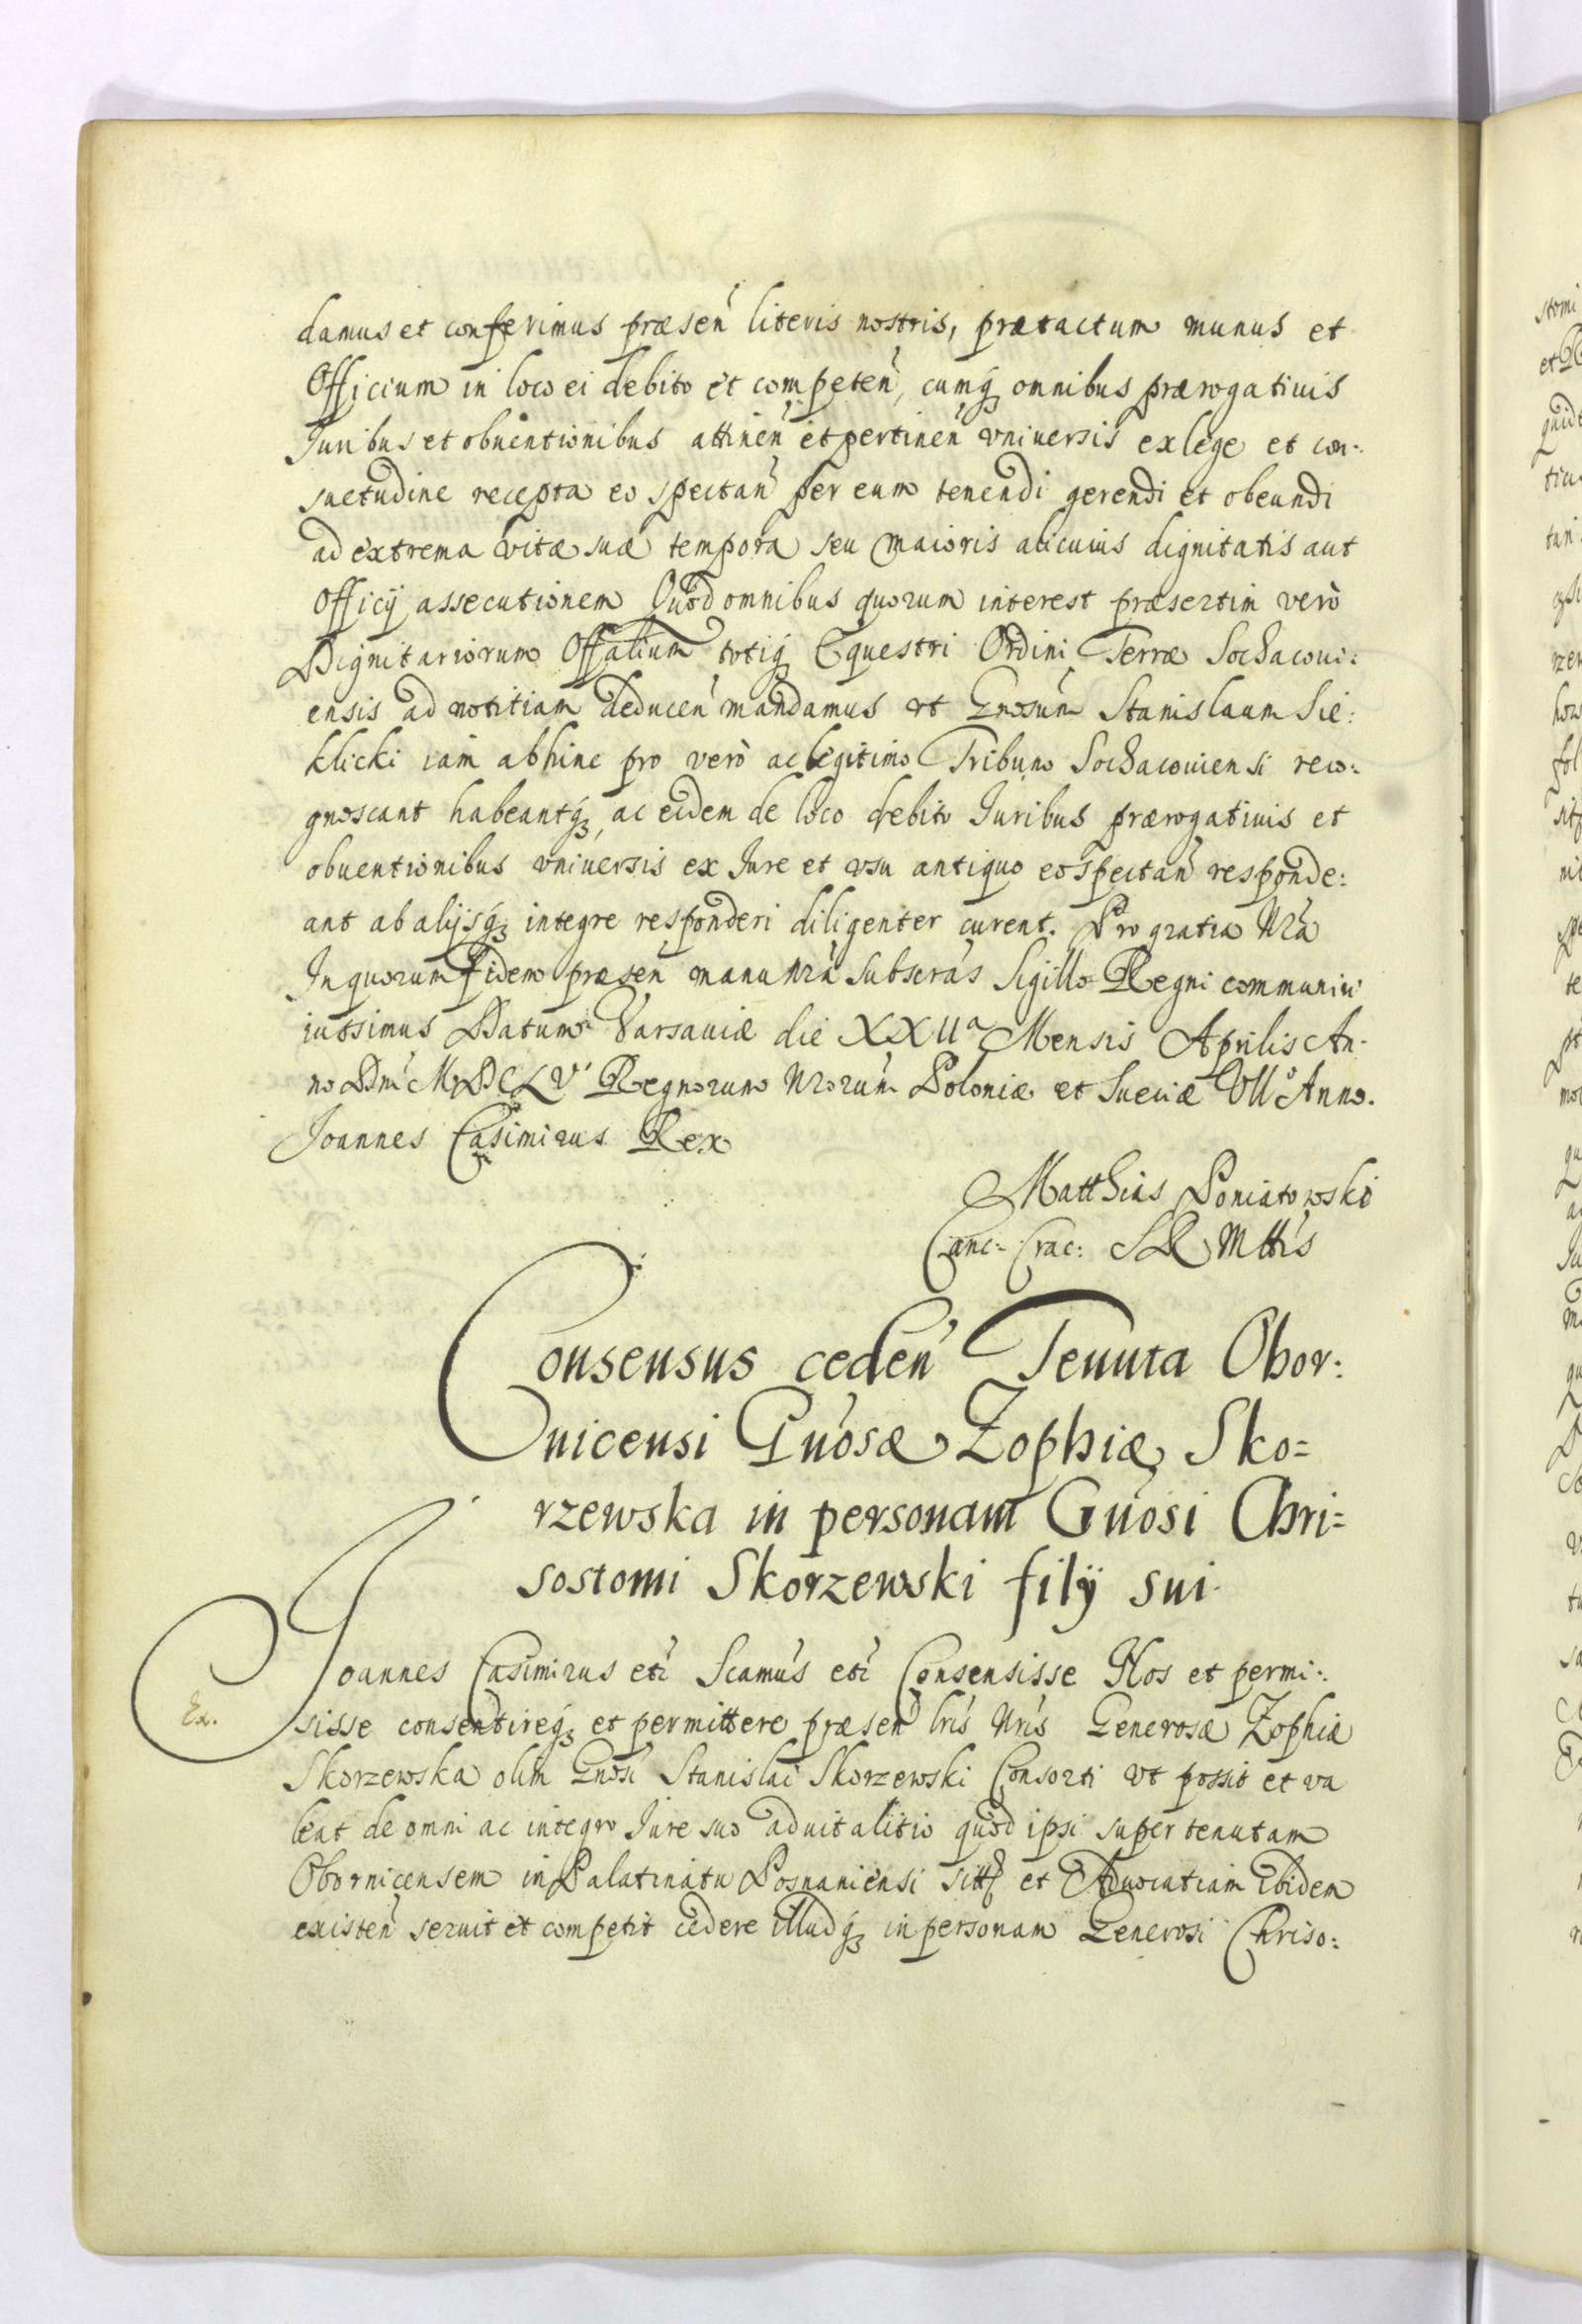 damus et conferimus præsen̛ literis nostris, prætactum munus et
Officium in loco ei debito et competen̛, cumq́ꝫ omnibus prærogatiuis
Juribus et obuentionibus attinen̛ et pertinen̛ vniuersis ex lege et con:
suetudine recepta eo spectan̛ per eum tenendi gerendi et obeundi
ad extrema vitæ suæ tempora seu maioris alicuius dignitatis aut
Officij assecutionem Quod omnibus quorum interest præsertim verò
Dignitariorum Offalium totiq́ꝫ Equestri Ordini Terræ Sochacoui:
ensis ad notitiam deducen̛ mandamus vt Gnosum Stanislaum Sie:
klicki iam abhinc pro verò ac legitimo Tribuno Sochacouiensi reco:
gnoscant habeantq́ꝫ, ac eidem de loco debito Juribus prærogatiuis et
obuentionibus vniuersis ex Jure et vsu antiquo eo spectan̛ responde:
ant ab alijsq́ꝫ integre responderi diligenter curent. Pro gratia Nr̃a
In quorum fidem præsen̛ manu Nr̃a subscras̛ Sigillo Regni communiri
iussimus Datum Varsauiæ die XXIIª Mensis Aprilis An-
no Dni̛ MDCLV̛ Regnorum Nrorum̛ Poloniæ et Sueciæ VII° Anno.
Joannes Casimirus Rex
Matthias Poniatowski
Canc: Crac: SR Mttis̛
Consensus ceden̛ Tenuta Obor:
nicensi Gnosæ Zophiæ Sko=
rzewska in personam Gnosi Chri=
sostomi Skorzewski filÿ sui.
Joannes Casimirus etc̛ Scamus̛ etc̛ Consensisse Nos et permi:
Ex.
sisse consentireq́ꝫ et permittere præsen̛ lris̛ Nris̛ Generosæ Zophiæ
Skorzewska olim Gnosi Stanislai Skorzewski Consorti vt possit et va
leat de omni ac integro Jure suo aduitalitio quod ipsi super tenutam
Obornicensem in Palatinatu Posnaniensi sitt et Aduocatiam Ibidem
existen̛ seruit et competit cedere illudq́ꝫ in personam Generosi Chriso: